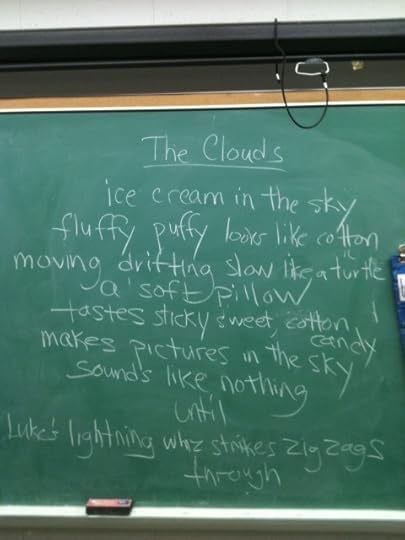 The Clouds
ice cream in the sky
fluffy puffy looks like cotton
moving drifting slow like a turtle
a soft pillow
tastes sticky sweet, cotton candy
makes pictures in the sky
sounds like nothing
until
Luke's lightning whiz strikes zig zags
through